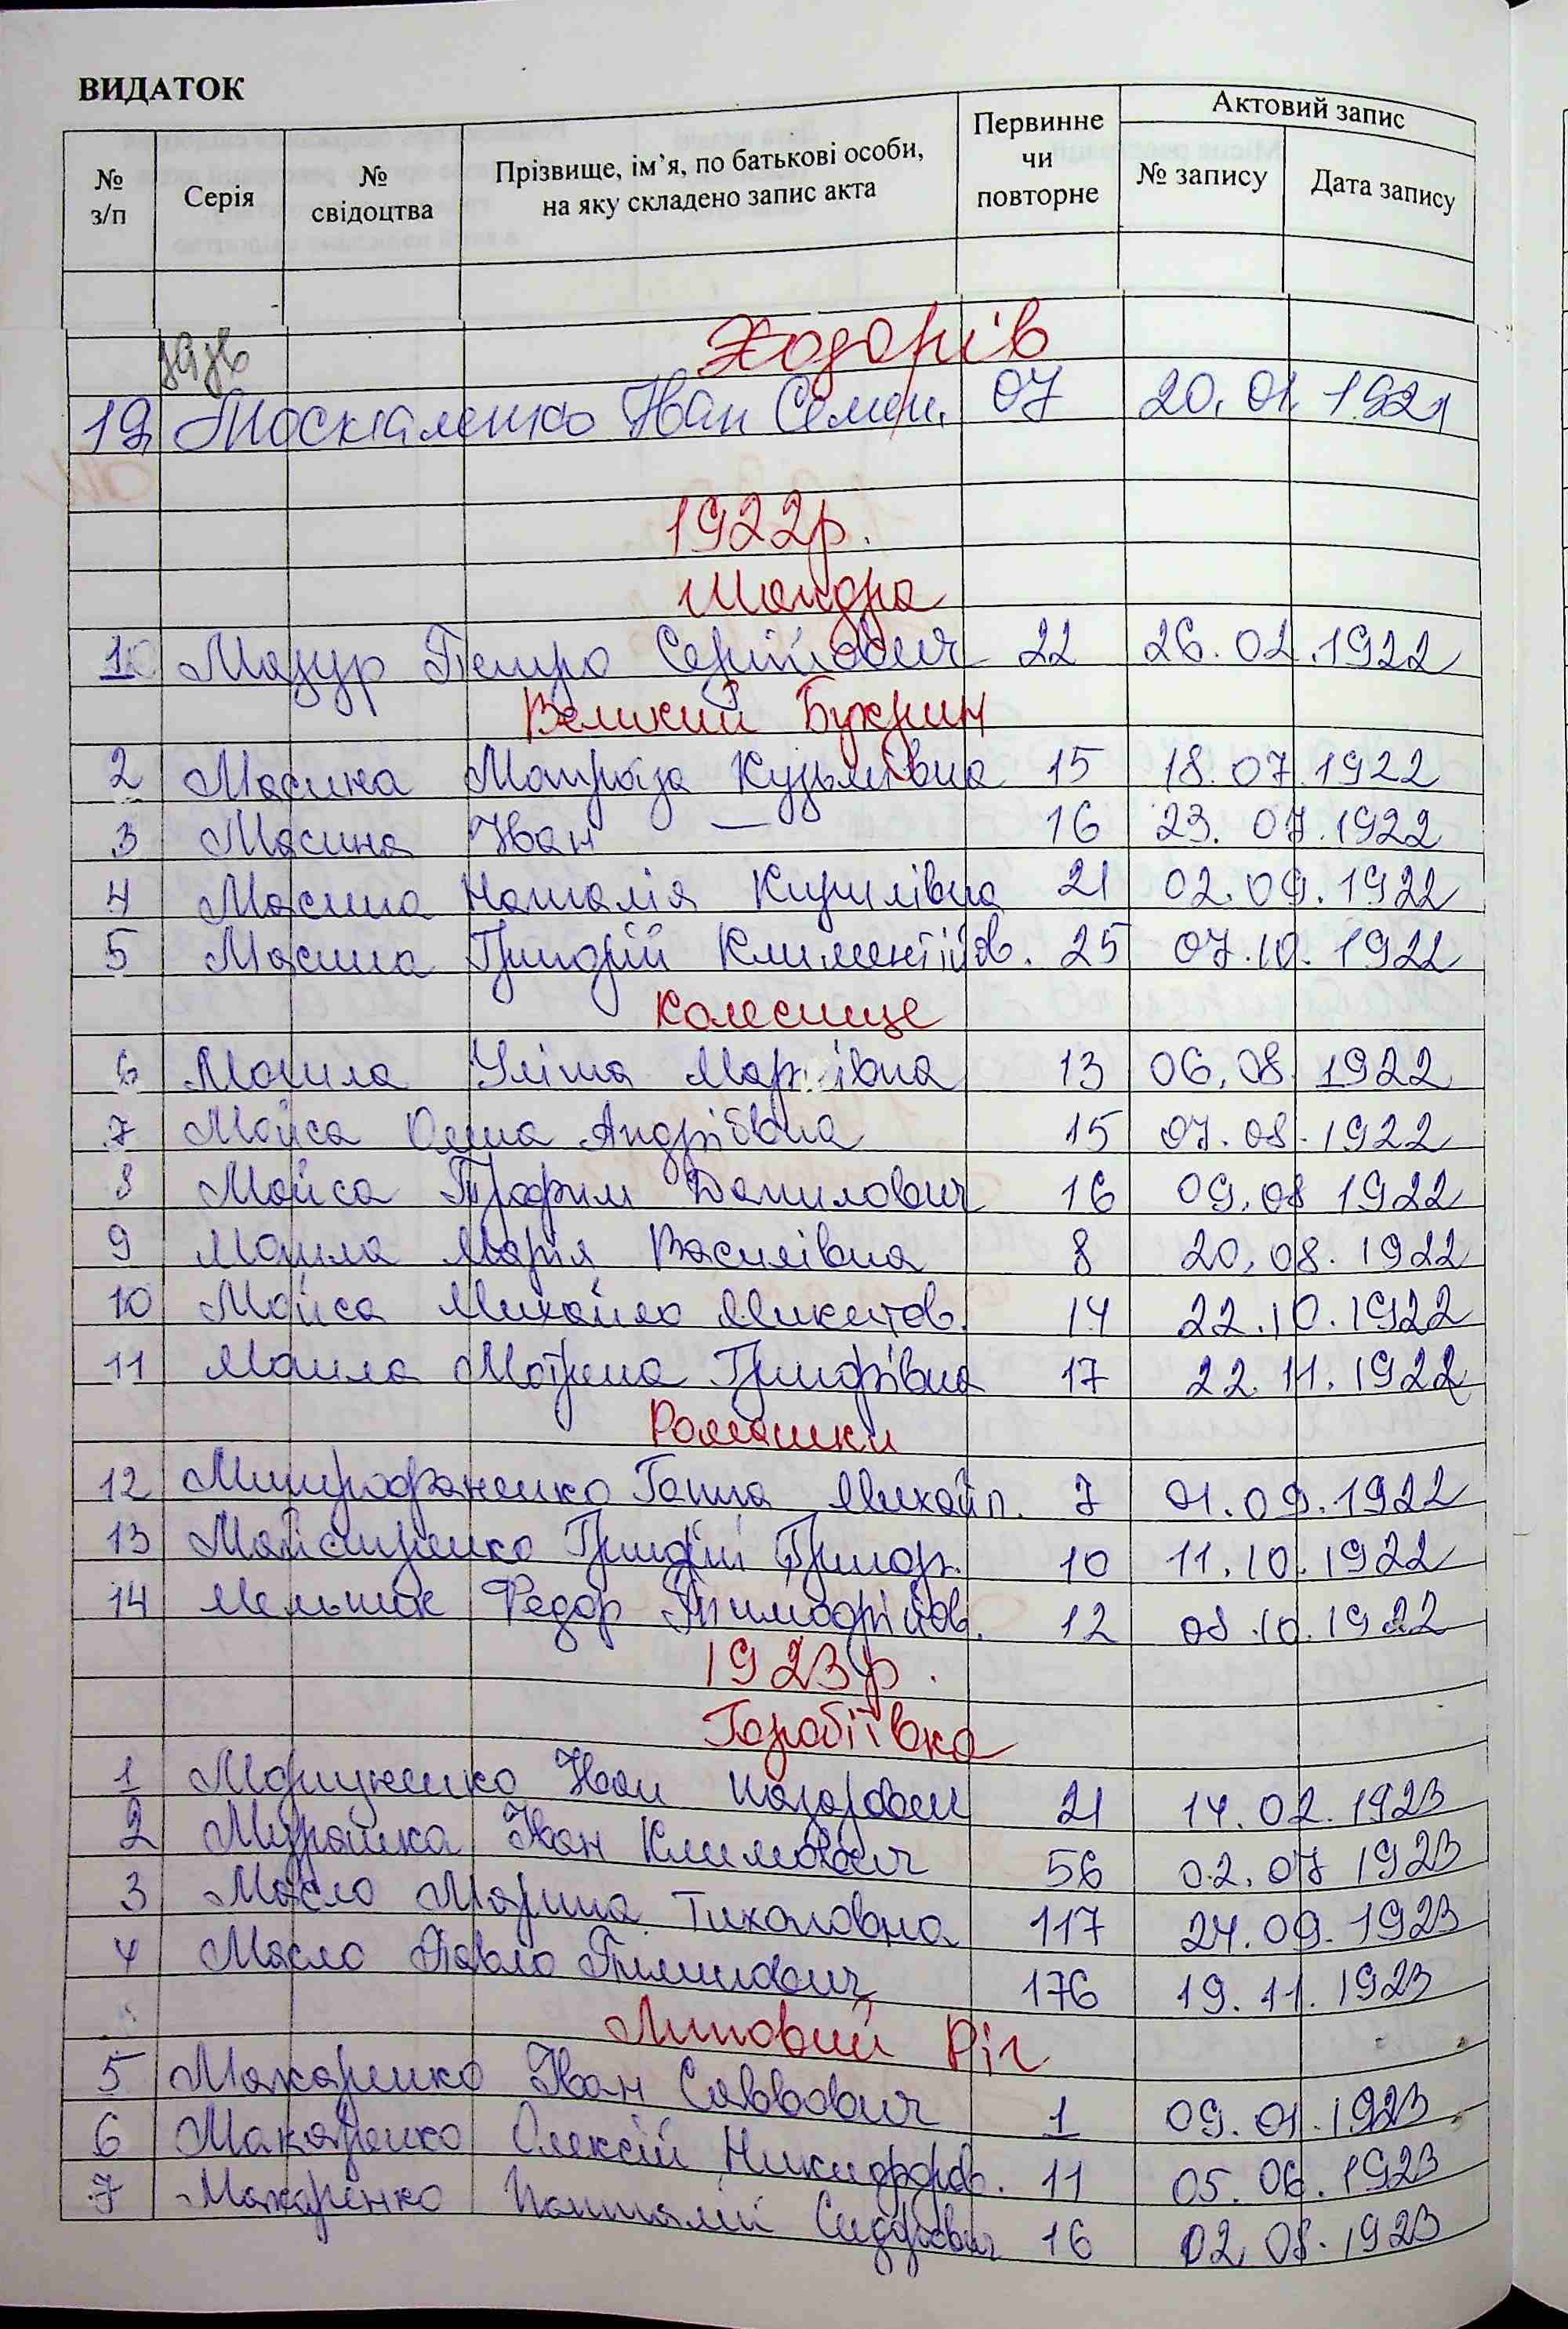 ВИДАТОК
№ з/п Серія № свідоцтва Прізвище, ім’я, по батькові особи, на яку складено запис акта Первинне чи повторне Актовий запис № запису Дата запису
Ходорів
19 Москаленко Іван Семен. 07 20.01.1921
1922р.
Шандра
1 Мазур Петро Сергійович 22 26.02.1922
Великий Букрин
2 Масина Кузьмівна 15 18.07.1922
3 Масина Іван — 16 23.07.1922
4 Масина Наталія Кирилівна 21 02.09.1922
5 Масина Григорій Климентійов. 25 07.10.1922
Колесище
6 Моцила Уліта 13 06.08.1922
7 Мойса Олена Андріївна 15 07.08.1922
8 Мойса Трофим Данилович 16 09.08 1922
9 Марія Василівна 8 20.08.1922
10 Мойса Михайло Микитов. 14 22.10.1922
11 Мотрина Григорівна 17 22.11.1922
Ромашки
12 Митрофаненко Ганна Михайл. 7 01.09.1922
13 Майстренко Григорій Григор. 10 11.10.1922
14 Мельник Федор Тимофійов. 12 08.10.1922
1923р.
Горобіївка
1 Іван Назарович 21 14.02.1923
2 Мурашка Іван Климович 56 02.07 1923
3 Масло Марина Тихоновна 117 24.09.1923
4 Масло Павло Пилипович 176 19.11.1923
Липовий Ріг
5 Макаренко Іван Саввович 1 09.01.1923
6 Макаренко Олексій Никифоров. 11 05.06.1923
7 Макаренко Пантелій Сидорович 16 02.08.1923